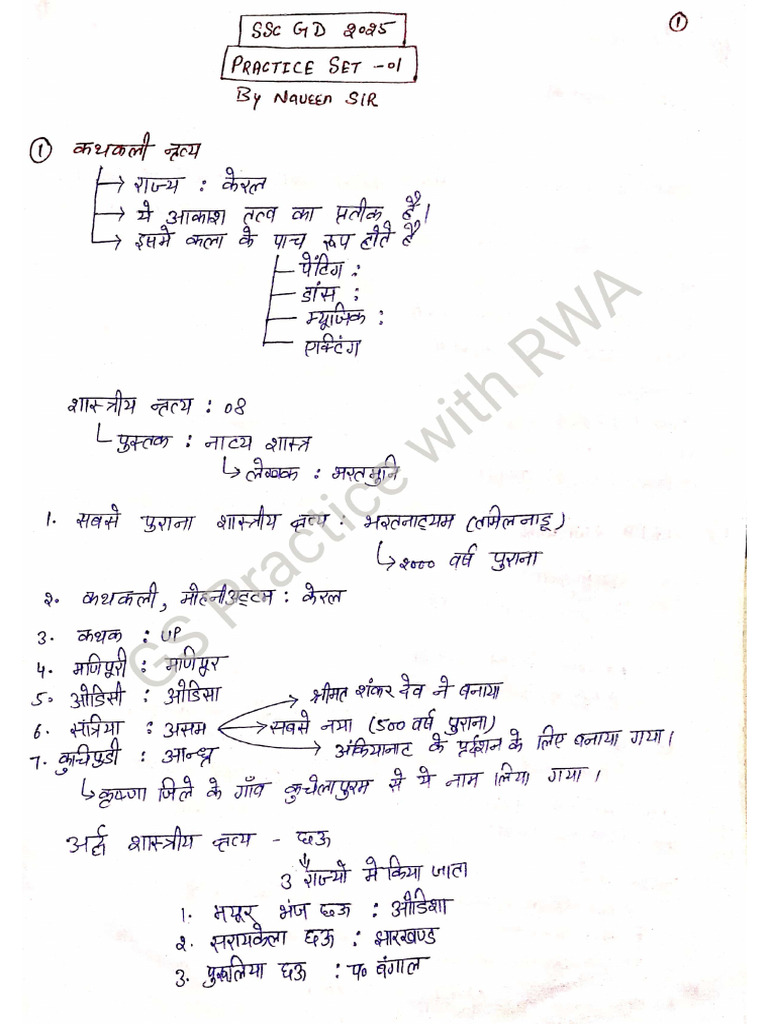 1
SSC GD 2025
PRACTICE SET -01
By NAVEEN SIR
1 कथकली नृत्य
→ राज्य : केरल
→ ये आकाश तत्व का प्रतीक है।
→ इसमे कला के पाच रूप होते है
पेंटिग :
डांस :
म्यूजिक :
एक्टिंग
शास्त्रीय नृत्य : 08
पुस्तक : नाट्य शास्त्र
→ लेखक : भरतमुनि
1. सबसे पुराना शास्त्रीय नृत्य : भरतनाट्यम (तमिलनाडू)
→ 2000 वर्ष पुराना
2. कथकली, मोहनीअट्टम : केरल
3. कथक : UP
4. मणिपूरी : मणिपूर
5. ओडिसी : ओडिसा
→ श्रीमत शंकर देव ने बनाया
6. संत्रिया : असम → सबसे नया (500 वर्ष पुराना)
→ अंकियानाट के प्रर्दशन के लिए बनाया गया।
7. कुचिपुडी : आन्ध्र
→ कृष्णा जिले के गाँव कुचेलापुरम से ये नाम लिया गया।
अर्द्ध शास्त्रीय नृत्य - छऊ
3 राज्यो मे किया जाता
1. मयूर भंज छऊ : ओडिशा
2. सरायकेला छऊ : झारखण्ड
3. पुरूलिया छऊ : प० बंगाल
GS Practice with RWA